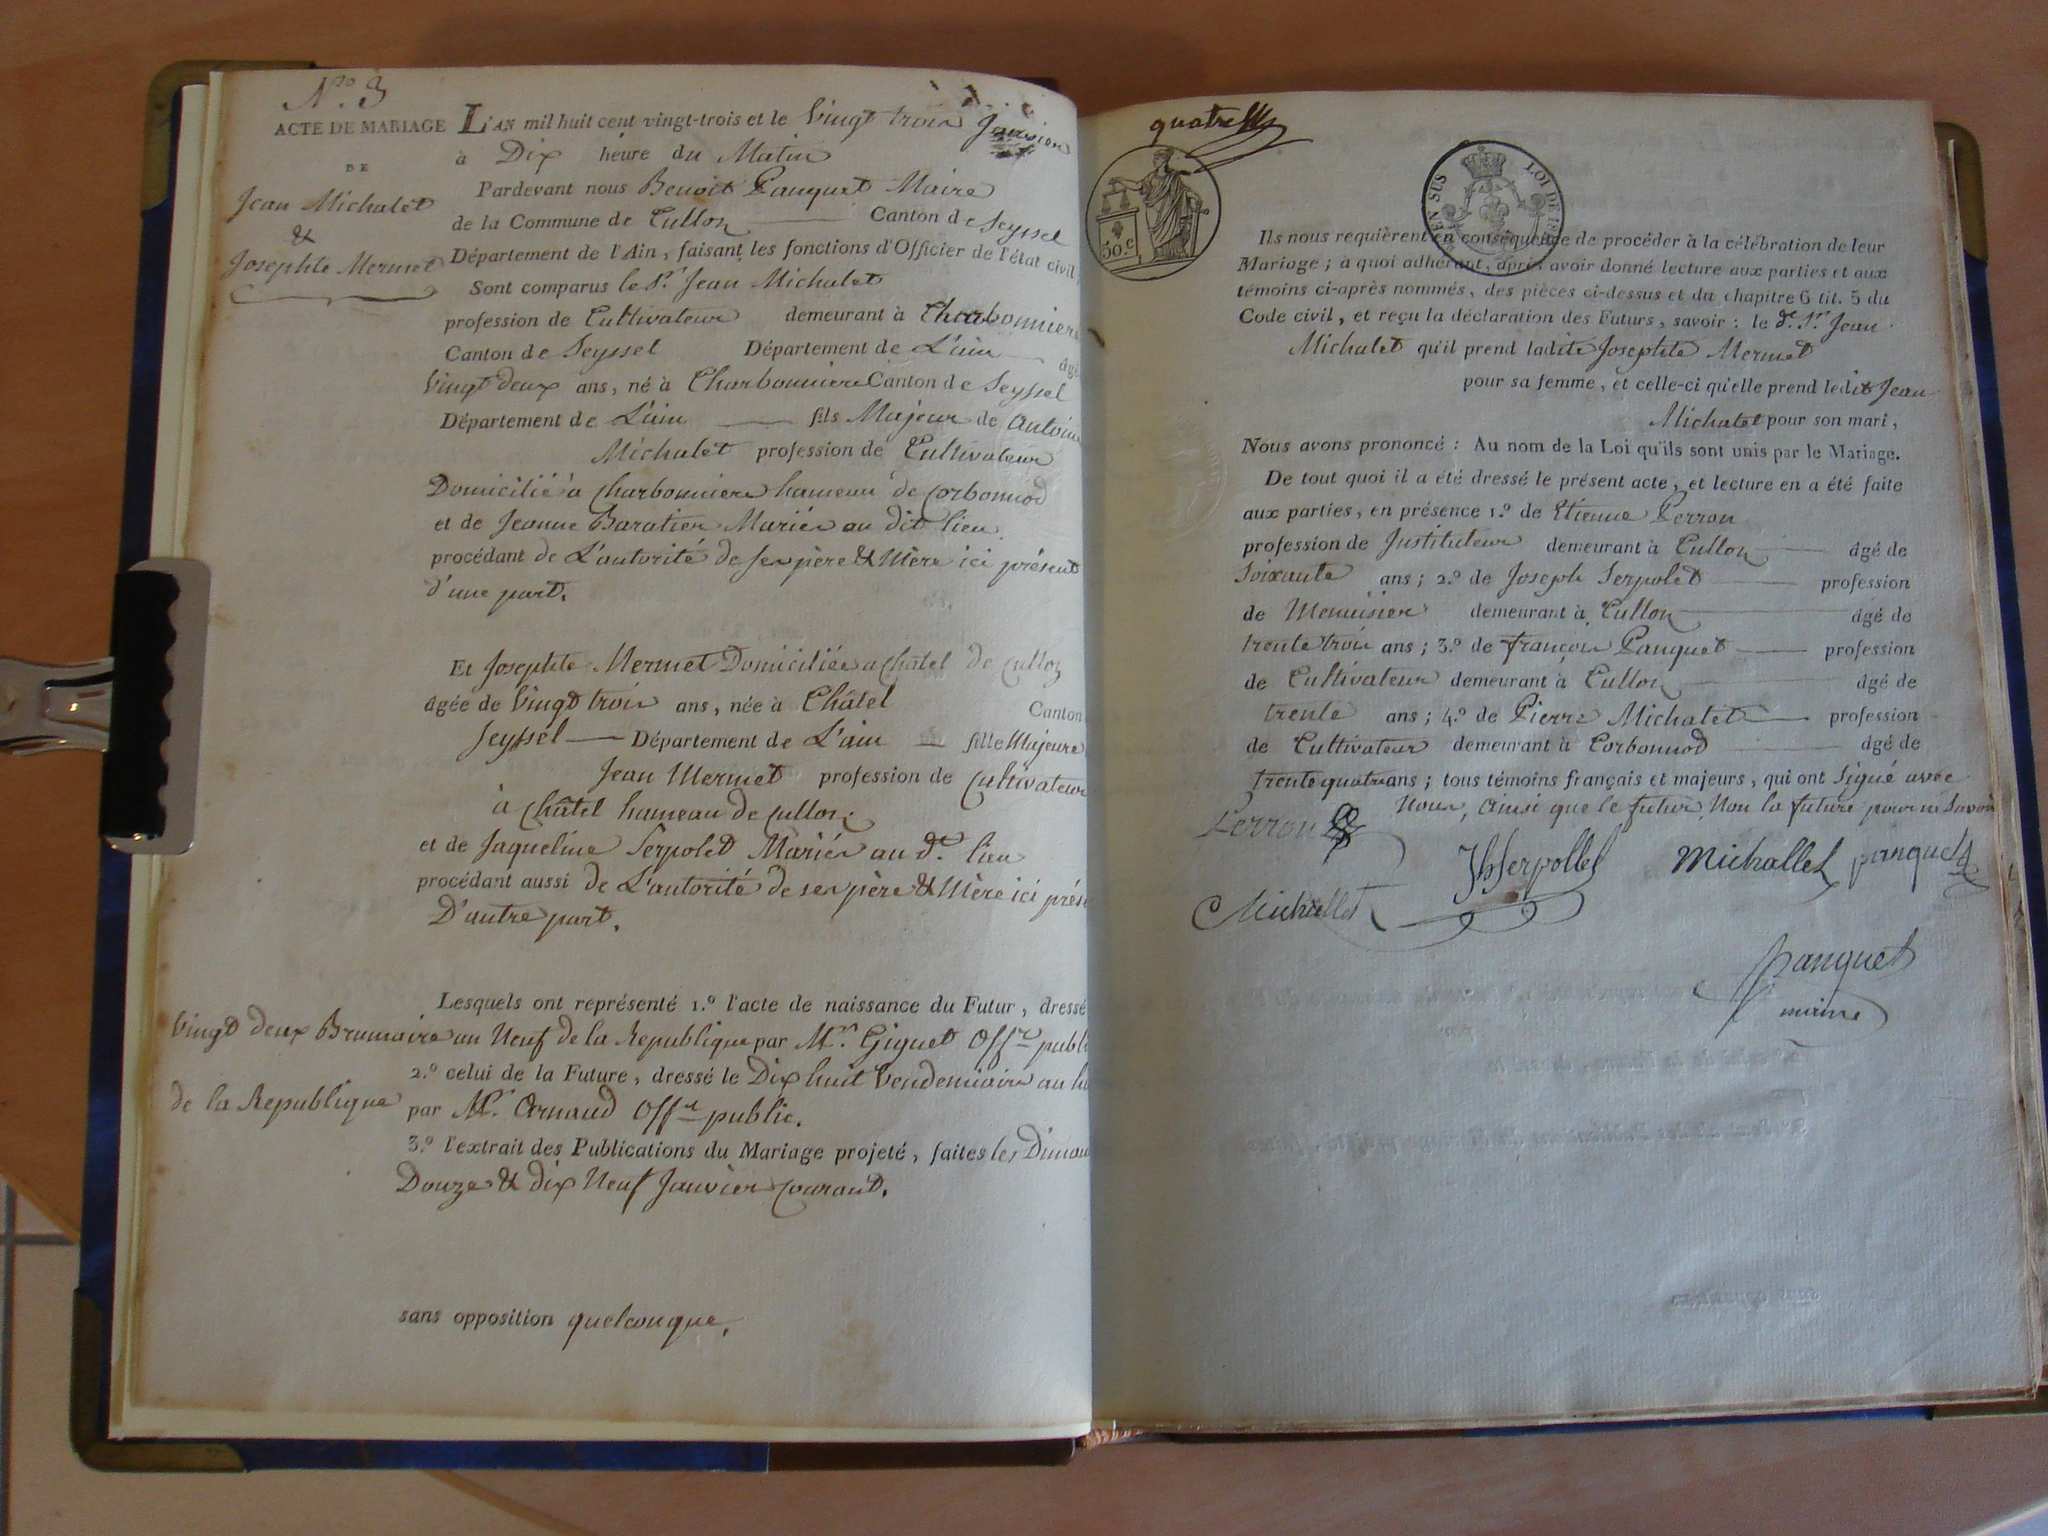 N.ro 3
ACTE DE MARIAGE
DE
Jean Michalet
&
Josephte Mermet
L'AN mil huit cent vingt-trois et le Vingt trois Janvier
à Dix heure du Matin
Pardevant nous Benoit Panquet Maire
de la Commune de Culloz Canton de Seyssel
Département de l'Ain, faisant les fonctions d'Officier de l'état civil,
Sont comparus le Sr. Jean Michalet
profession de Cultivateur demeurant à Charbonniere
Canton de Seyssel Département de L'ain âgé
Vingt deux ans, né à Charbonniere Canton de Seyssel
Département de L'ain fils Majeur de Antoine
Michalet profession de Cultivateur
Domicilié à Charbonniere hameau de Corbonnod
et de Jeanne Baratier Mariés au dit lieu
procédant de L'autorité de ses père & Mère ici présent
d'une part.
Et Josephte Mermet Domiciliée a Châtel de Culloz
âgée de Vingt trois ans, née à Châtel Canton
Seyssel Département de L'ain fille Majeure
Jean Mermet profession de Cultivateur
à Châtel hameau de Culloz.
et de Jaqueline Serpolet Mariés au dt. lieu
procédant aussi de L'autorité de ses père & Mère ici prése
D'autre part.
Lesquels ont représenté 1.º l'acte de naissance du Futur, dressé
Vingt deux Brumaire an Neuf de la Republique par Mr. Giguet Offer publi
2.º celui de la Future, dressé le Dix huit Vendemiaire an hu
de la Republique par Mr. Arnaud Offer public.
3.º l'extrait des Publications du Mariage projeté, faites les Diman
Douze & dix Neuf Janvier Courant.
sans opposition quelconque.
quatre
50.c
EN SUS
LOI DE
Ils nous requièrent en conséquence de procéder à la célébration de leur
Mariage; à quoi adhérant, après avoir donné lecture aux parties et aux
témoins ci-après nommés, des pièces ci-dessus et du chapitre 6 tit. 5 du
Code civil, et reçu la déclaration des Futurs, savoir: le dt. Sr. Jean
Michalet qu'il prend ladite Josephte Mermet
pour sa femme, et celle-ci qu'elle prend ledit Jean
Michalet pour son mari,
Nous avons prononcé: Au nom de la Loi qu'ils sont unis par le Mariage.
De tout quoi il a été dressé le présent acte, et lecture en a été faite
aux parties, en présence 1.º de Etienne Perron
profession de Instituteur demeurant à Culloz âgé de
Soixante ans; 2.º de Joseph Serpolet profession
de Menuisier demeurant à Culloz âgé de
trente trois ans; 3.º de françois Panquet profession
de Cultivateur demeurant à Culloz âgé de
trente ans; 4.º de Pierre Michalet profession
de Cultivateur demeurant à Corbonnod âgé de
trente quatre ans; tous témoins français et majeurs, qui ont Signé avec
Nous, Ainsi que le futur, Non la future pour ne Savoir
Perron
Jh Serpollet Michallet panquet
Michallet
Panquet
maire